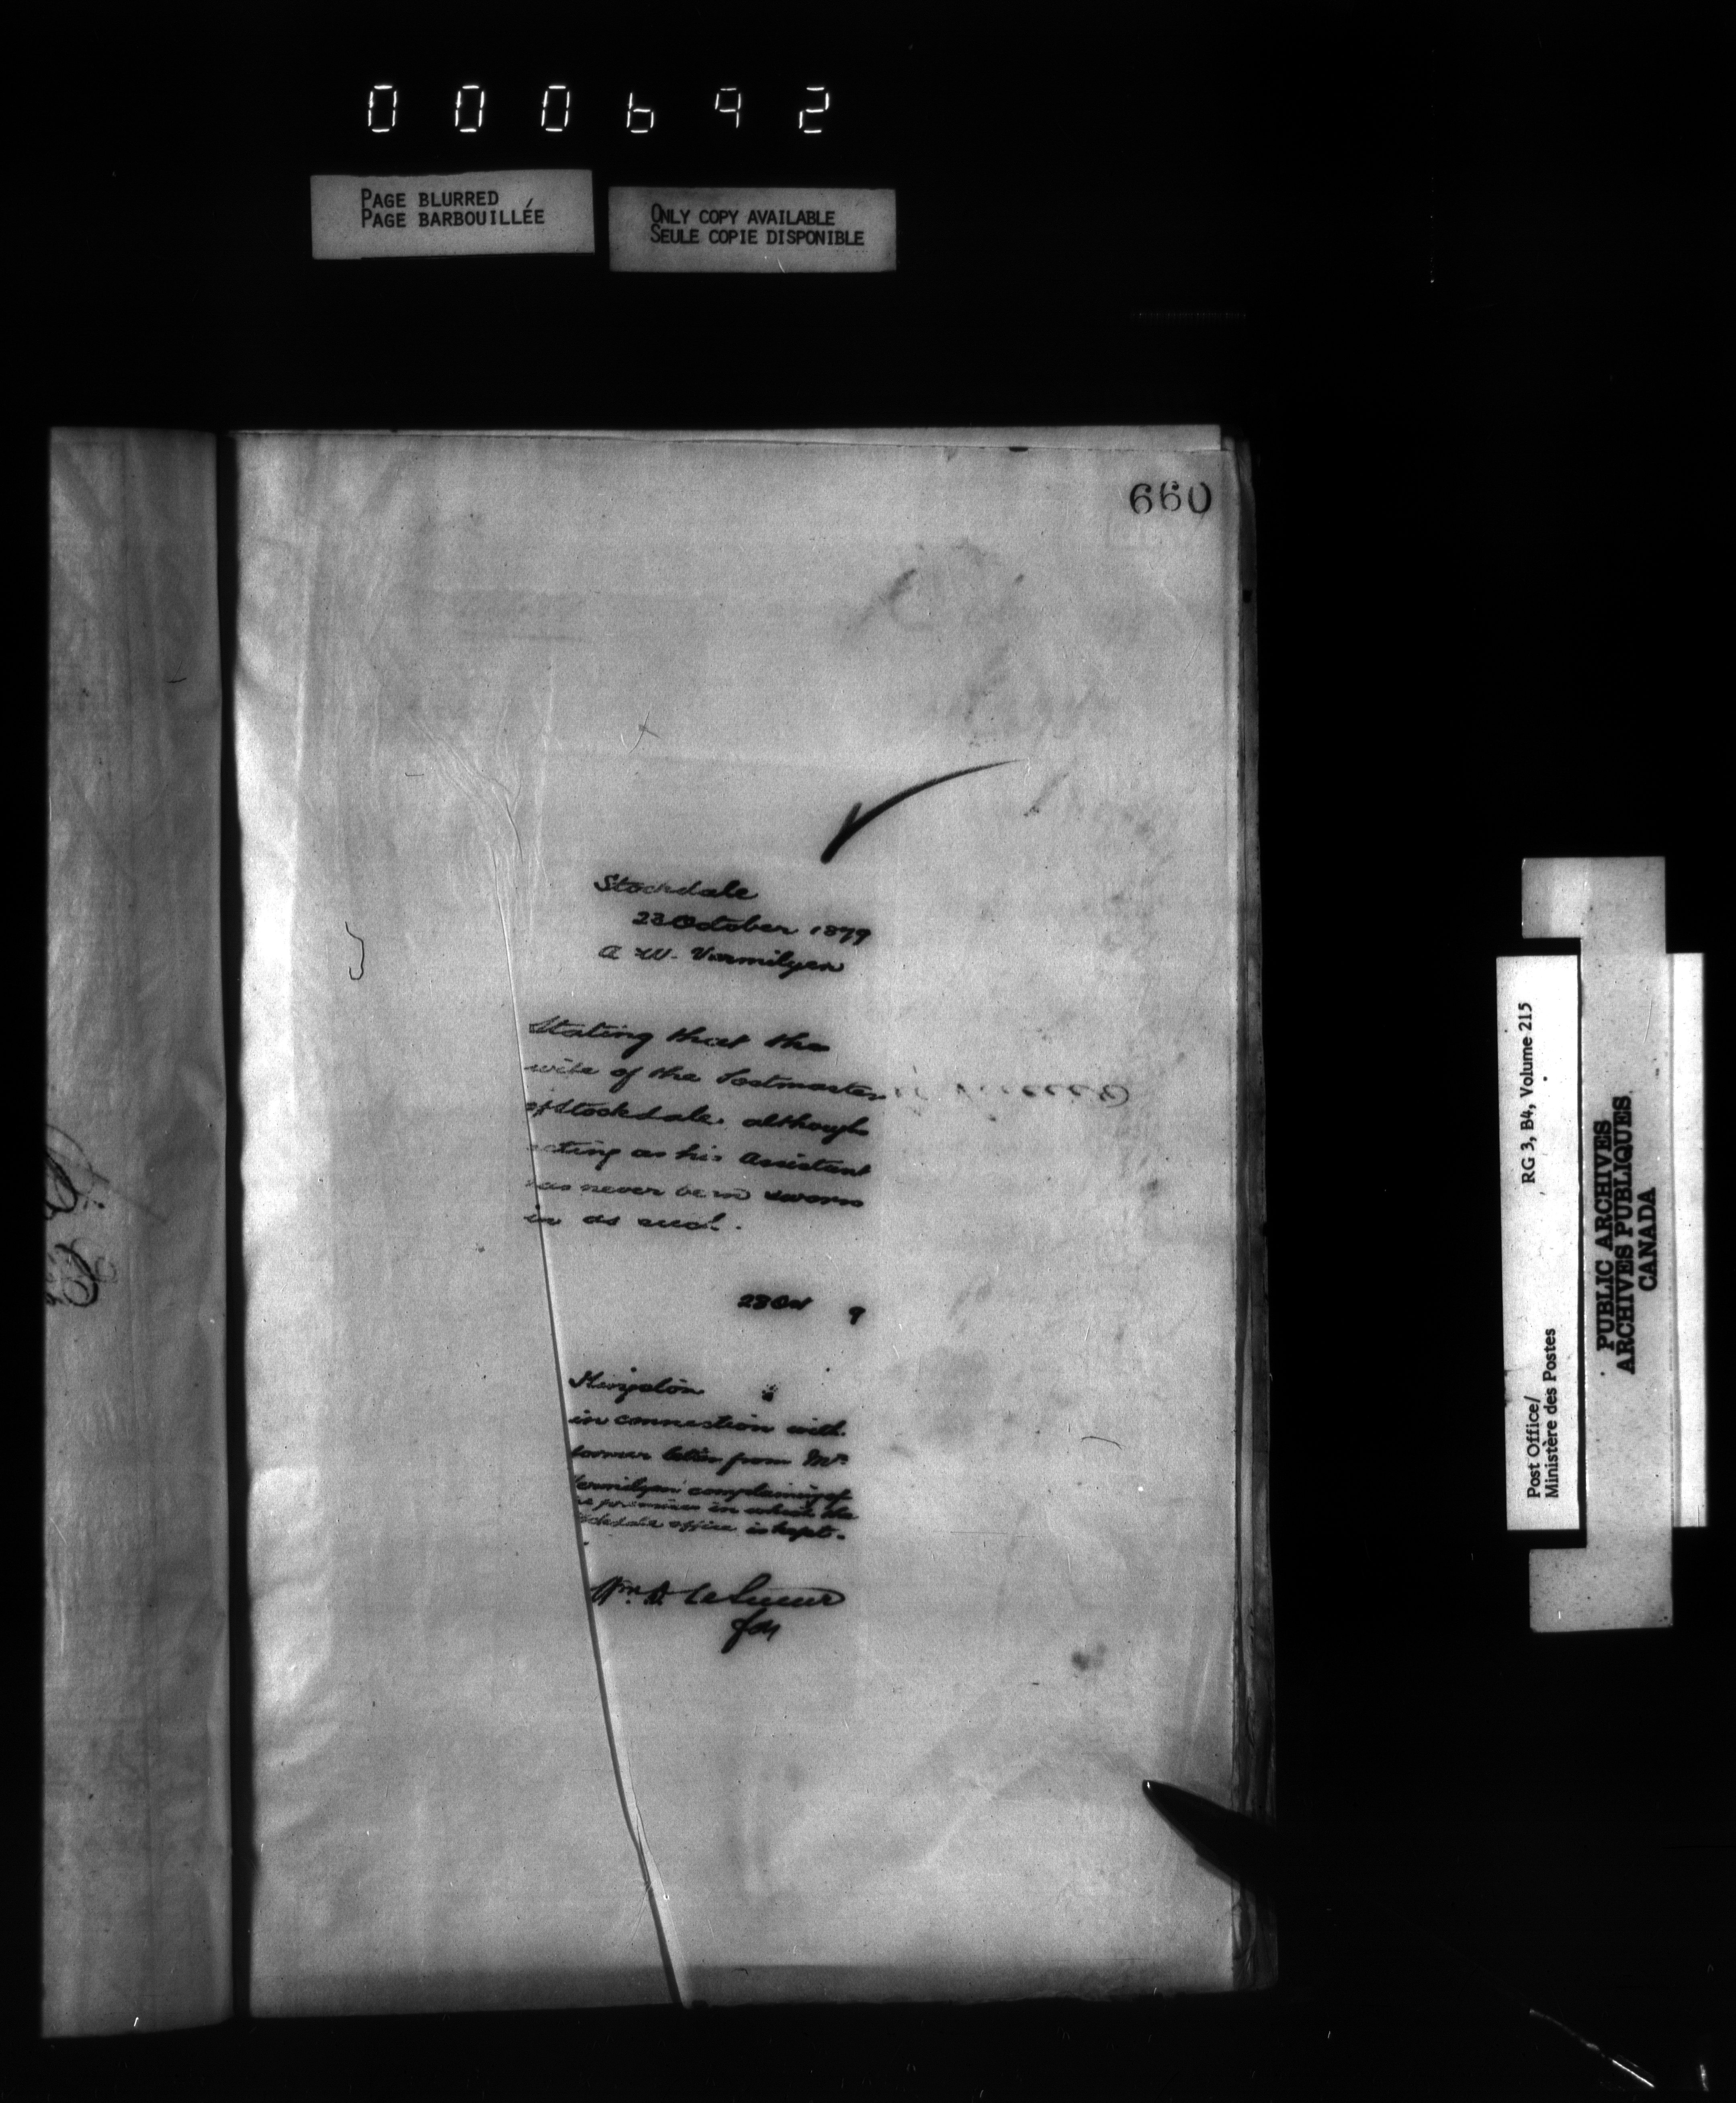 000692
PAGE BLURRED
PAGE BARBOUILLÉE
ONLY COPY AVAILABLE
SEULE COPIE DISPONIBLE
660
Stockdale
23 October 1879
A W. Vermilyea
Stating that the
wife of the Postmaster
of Stockdale, although
acting as his Assistant
has never been sworn
in as such.
23 Oct 9
Kingston
in connection with
former letter from Mr
Vermilyea complaining of
the premises in which the
Stockdale office is kept.
Wm. D. LeSueur
for
RG 3, B4, Volume 215
Post Office/
Ministère des Postes
PUBLIC ARCHIVES
ARCHIVES PUBLIQUES
CANADA